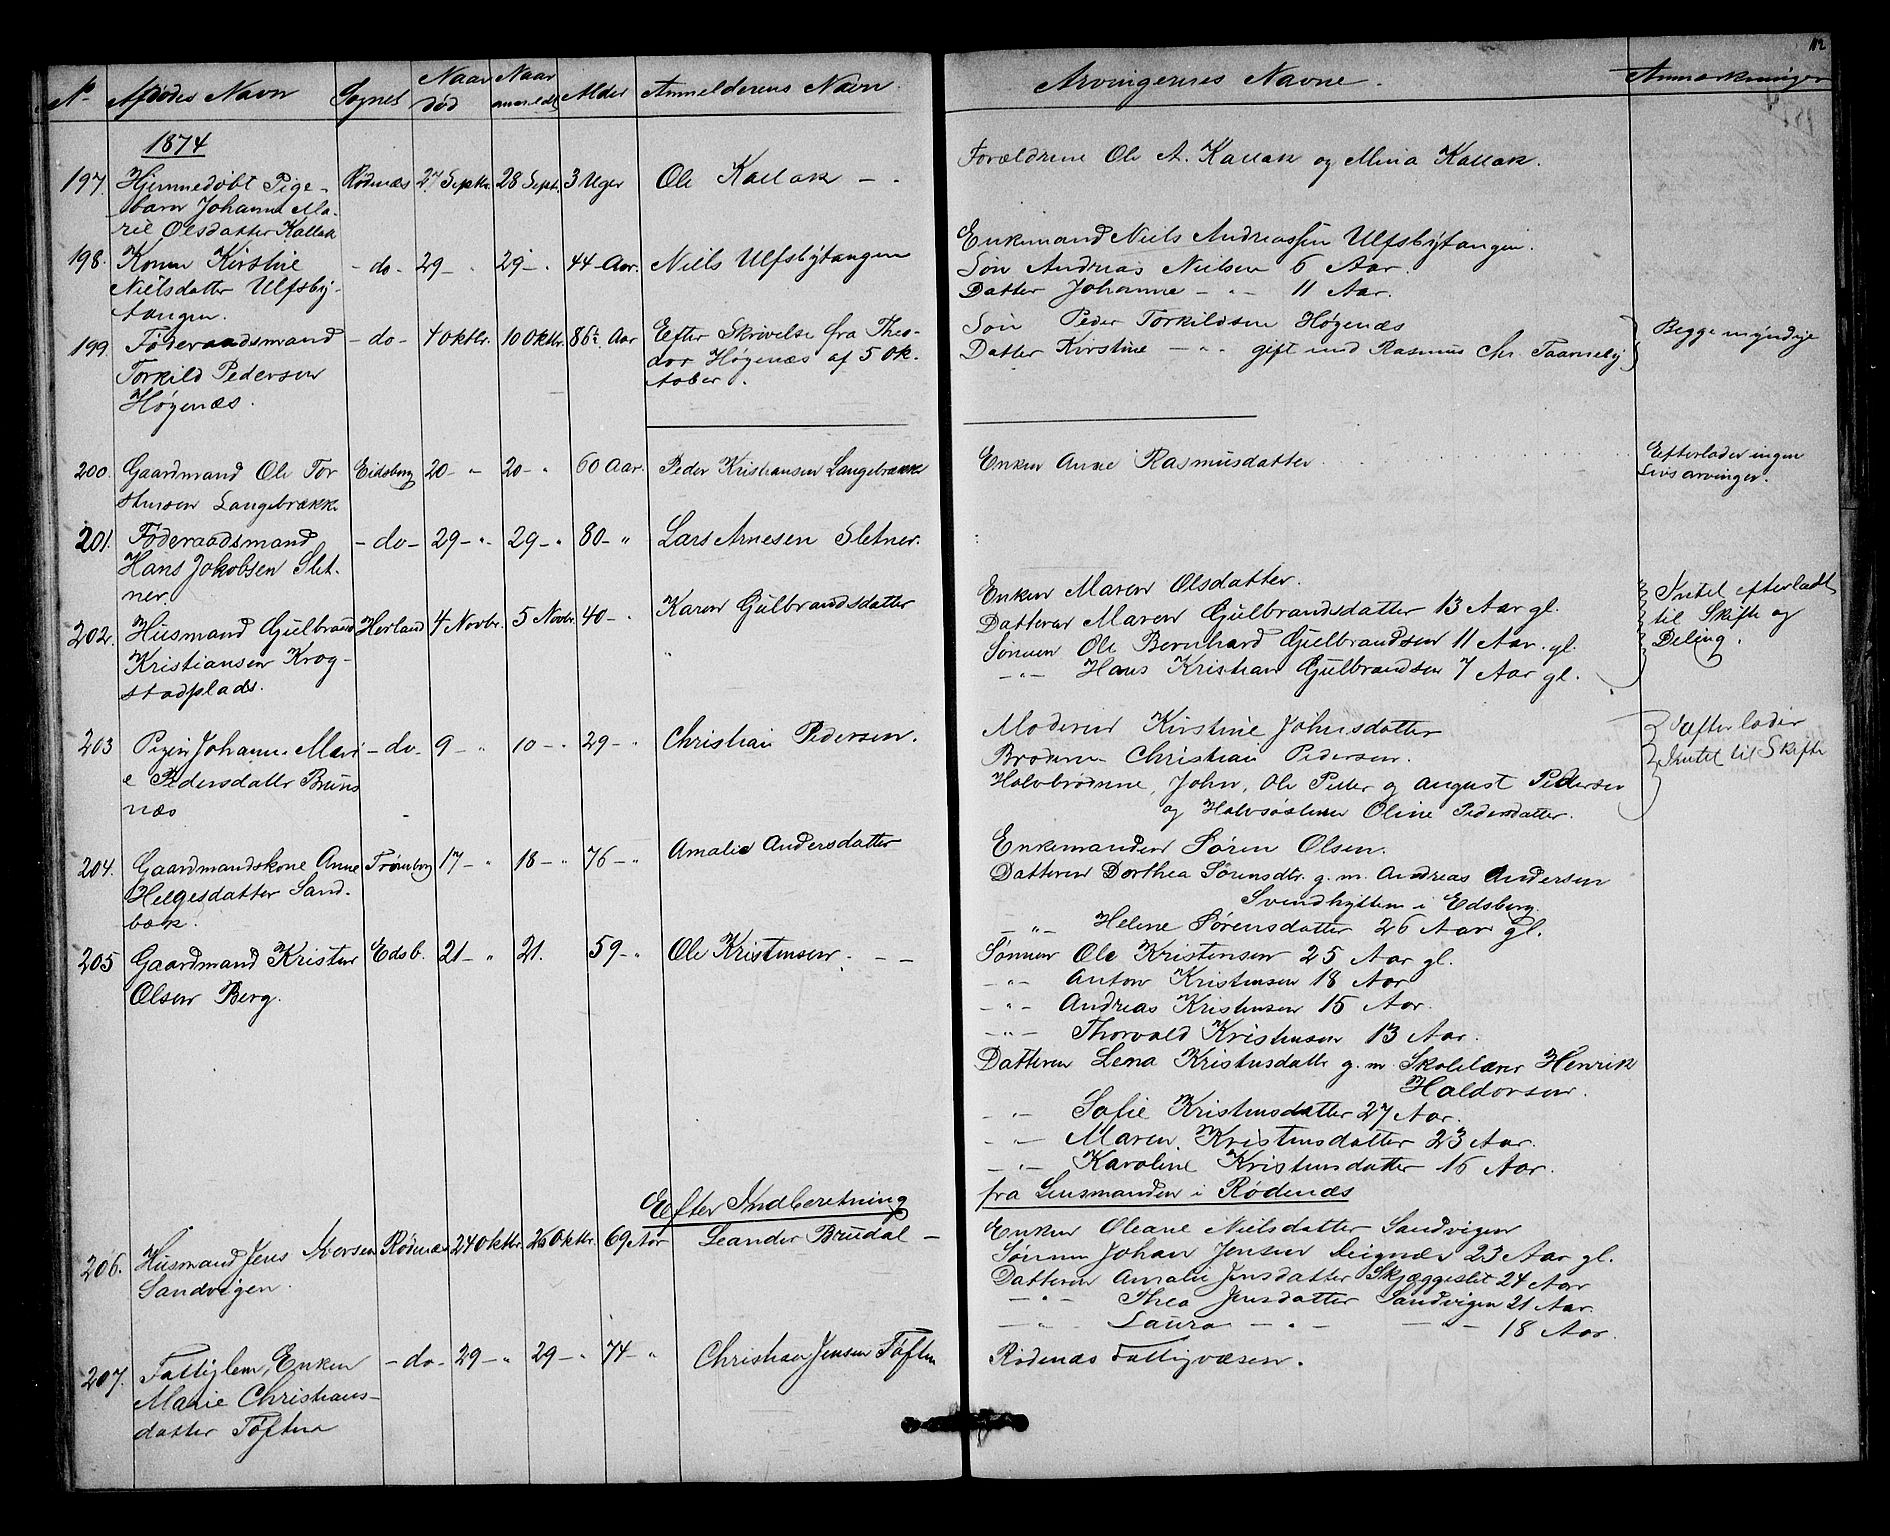 12
No Afdødes Navn Sognet Naar død Naar anmeldt Alder Anmelderens Navn Arvingernes Navne. Anmærkninger
1874
197. Hjemmedøbt Pige- Rødenæs 27 Septbr. 28 Sept. 3 Uger Ole Kallak - - Forældrene Ole A. Kallak og Mina Kallak.
barn Johanne Ma-
rie Olsdatter Kallak
198. Konen Kirstine - do - 29 - " 29 - " 44 Aar. Niels Ulfsbytangen Enkemand Niels Andreassen Ulfsbytangen.
Nielsdatter Ulfsby- Søn Andreas Nielsen 6 Aar.
tangen. Datter Johanne - " - 11 Aar.
199. Føderaadsmand - do - 4 Oktbr. 10 Oktbr. 86 Aar Efter Skrivelse fra Theo- Søn Peder Torkildsen Høgenæs Begge myndige
Torkild Pedersen dor Høgenæs af 5 Ok- Datter Kirstine - " - gift med Rasmus Chr. Taarneby
Høgenæs. tober.
200. Gaardmand Ole Tor Eidsberg 20 - " 20 - " 60 Aar. Peder Kristiansen Langebrække Enken Anne Rasmusdatter Efterlader ingen
stensen Langebrække Livsarvinger.
201. Føderaadsmand - do - 29 - " - 29 - " 80 - " Lars Arnesen Sletner.
Hans Jakobsen Slet-
ner.
202. Husmand Gulbrand Herland 4 Novbr. 5 Novbr. 40 - " Karen Gulbrandsdatter Enken Maren Olsdatter. Intet efterladt
Kristiansen Krog- Datteren Maren Gulbrandsdatter 13 Aar gl. til Skifte og
stadplads. Sønnen Ole Bernhard Gulbrandsen 11 Aar. gl. Deling.
- " - Hans Kristian Gulbrandsen 7 Aar gl.
203 Pigen Johanne Mari - do - 9 - " 10 - " 29 - " Christian Pedersen. Moderen Kirstine Johnsdatter Efterlader
e Pedersdatter Bruus Broderen Christian Pedersen. Intet til Skifte
næs Halvbrødrene, John, Ole Peter og August Pedersen
og Halvsøsteren Oline Pedersdatter.
204. Gaardmandskone Anne Trømborg 17 - " 18 - " 76 - " Amalie Andersdatter Enkemanden Søren Olsen.
Helgesdatter Sand- Datteren Dorthea Sørensdtr. g. m. Andreas Andersen
bæk. Svendhytten i Edsberg.
- " - Helene Sørensdatter 26 Aar gl.
205 Gaardmand Kristen Edsb. 21 - " 21. 59 - " Ole Kristensen. - - Sønnen Ole Kristensen 25 Aar gl.
Olsen Berg. - " - Anton Kristensen 18 Aar
- " - Andreas Kristensen 15 Aar.
- " - Thorvald Kristensen 13 Aar.
Datteren Lena Kristensdattr g. m. Skolelærer Henrik
Haldorsen.
- " - Sofie Kristensdatter 27 Aar.
- " - Maren Kristensdatter 23 Aar.
- " - Karoline Kristensdatter 16 Aar.
Efter Indberetning fra Lensmanden i Rødenæs
206. Husmand Jens Rødenæs 24 Oktbr. 26 Oktbr. 69 Aar Leander Brudal - Enken Oleane Nielsdatter Sandvigen
Sandvigen. Sønnen Johan Jensen 23 Aar gl.
Datteren Amalie Jensdatter Skjæggeslet 24 Aar
- " - Thea Jensdatter Sandvigen 21 Aar.
- " - Laura - " - - " - 18 Aar.
207. Fattiglem, Enken - do - 29 - " 29 - " 74 - " Christian Jensen Tøften Rødenæs Fattigvæsen.
Marie Christians-
datter Tøften